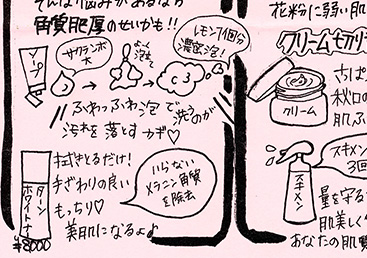 そんな悩みがあるなら
角質肥厚のせいかも!!
ソープ
サクランボ大
よーく泡立
レモン1個分
濃密泡!
ふわっふわ泡で洗うのが
汚れを落とすカギ♡
ターン
ホワイトナ
¥8000
拭きとるだけ!
手ざわりの良い
もっちり♡
美肌になるよ♪
いらない
メラニン角質
を除去
花粉に弱い肌
クリーム
秋口の
肌ふ
スキメン
スキメン
3回
量を守る
肌美しく
あなたの肌質